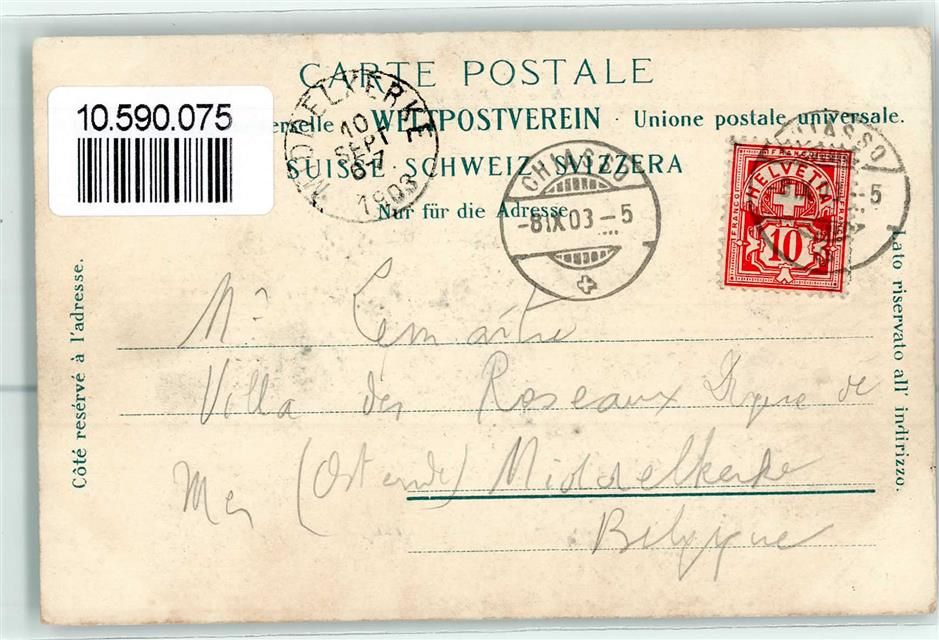 CARTE POSTALE
10.590.075
erselle · WELTPOSTVEREIN · Unione postale universale.
SUISSE · SCHWEIZ · SVIZZERA
Nur für die Adresse
MIDDELKERKE
10
SEPT
6-7
1903
CHIASSO
-8IX03-5
CHIASSO
5
FRANCO
HELVETIA
10
Côté resérvé à l'adresse.
Lato riservato all' indirizzo.
Mr Lemaître
Villa des Roseaux Digue de
Mer (Ostende) Middelkerke
Belgique